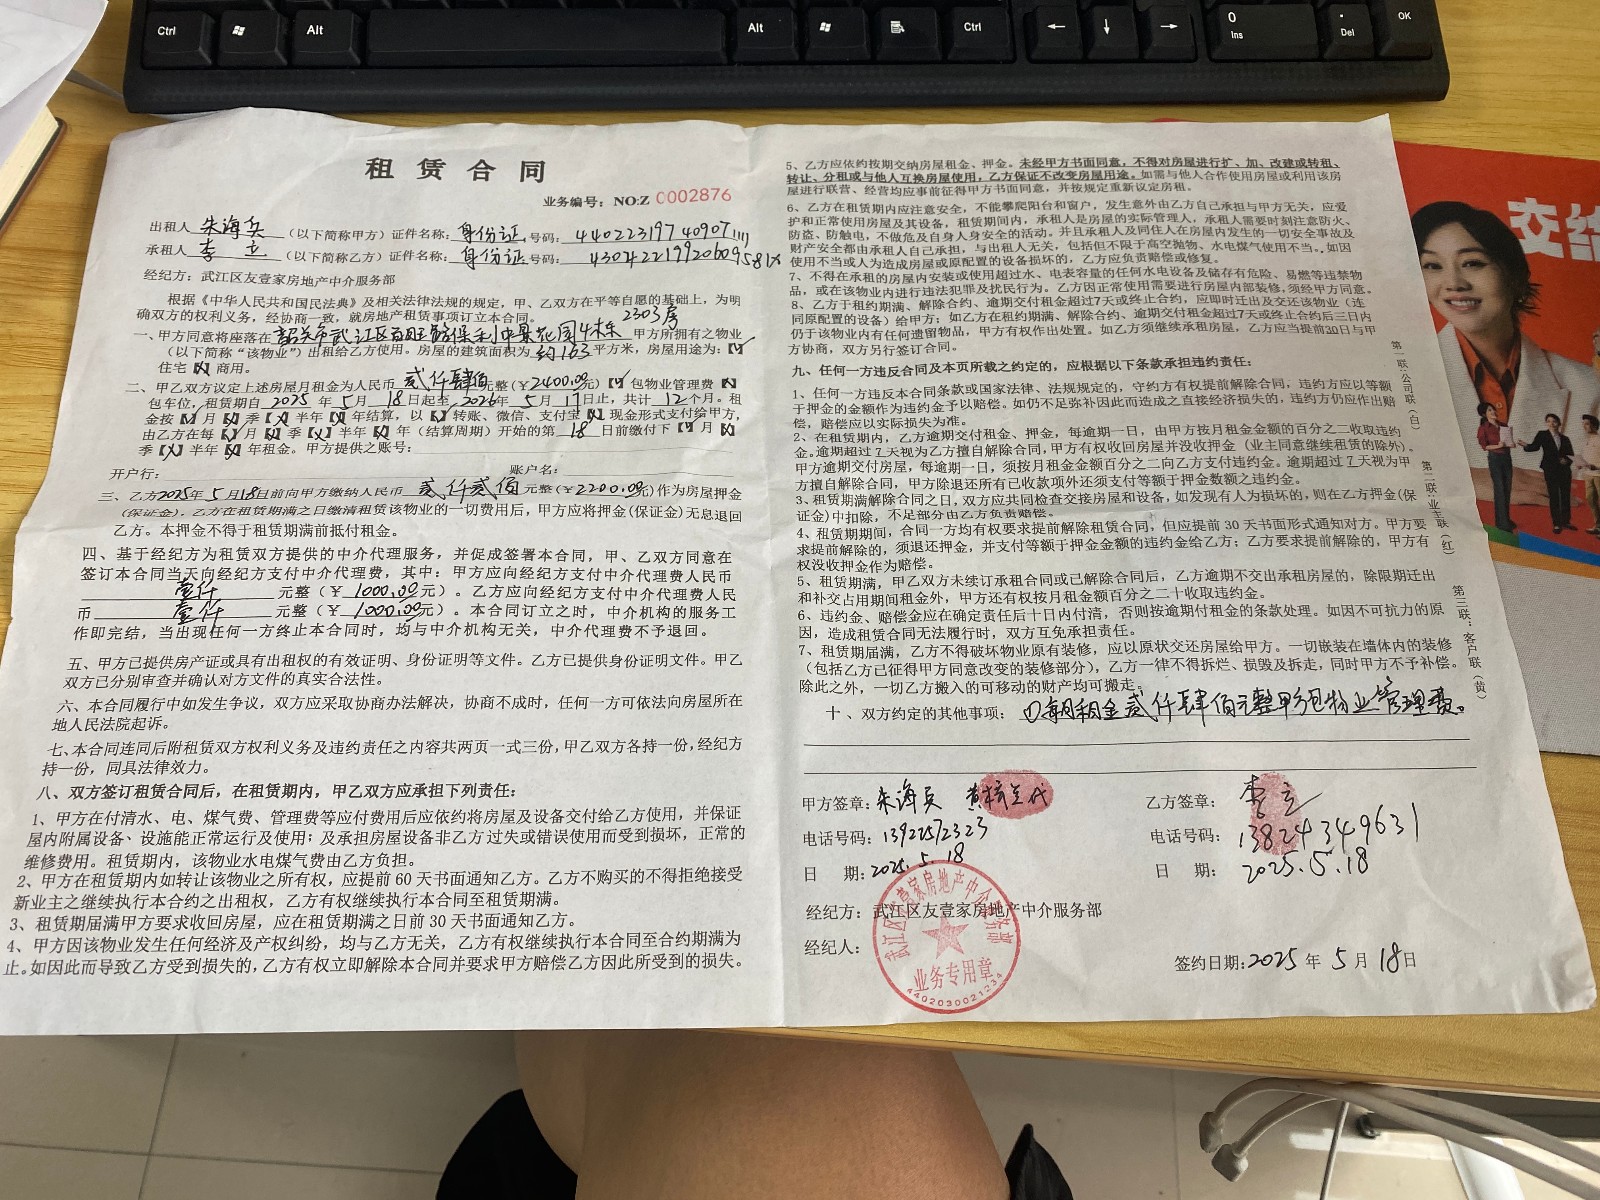 Ctrl
Alt
Alt
Ctrl
0
Ins
.
Del
OK
租赁合同
业务编号：NO:Z 0002876
出租人 朱海兵 （以下简称甲方）证件名称：身份证 号码：
承租人 李立 （以下简称乙方）证件名称：身份证 号码：
经纪方：武江区友壹家房地产中介服务部
根据《中华人民共和国民法典》及相关法律法规的规定，甲、乙双方在平等自愿的基础上，为明
确双方的权利义务，经协商一致，就房地产租赁事项订立本合同。
2303房
一、甲方同意将座落在 韶关市武江区百旺路保利中景花园4栋 甲方所拥有之物业
（以下简称“该物业”）出租给乙方使用。房屋的建筑面积为 约163 平方米，房屋用途为：【√】
住宅【×】商用。
二、甲乙双方议定上述房屋月租金为人民币 贰仟肆佰 元整（￥2400.00元）【√】包物业管理费【×】
包车位，租赁期自 2025 年 5 月 18 日起至 2026 年 5 月 17 日止，共计 12 个月。租
金按【√】月【×】季【×】半年【×】年结算，以【√】转账、微信、支付宝【×】现金形式支付给甲方，
由乙方在每【√】月【×】季【×】半年【×】年（结算周期）开始的第 18 日前缴付下【√】月【×】
季【×】半年【×】年租金。甲方提供之账号：
开户行： 账户名：
三、乙方2025年5月18日前向甲方缴纳人民币 贰仟贰佰 元整（￥2200.00元）作为房屋押金
（保证金），乙方在租赁期满之日缴清租赁该物业的一切费用后，甲方应将押金（保证金）无息退回
乙方。本押金不得于租赁期满前抵付租金。
四、基于经纪方为租赁双方提供的中介代理服务，并促成签署本合同，甲、乙双方同意在
签订本合同当天向经纪方支付中介代理费，其中：甲方应向经纪方支付中介代理费人民币
壹仟 元整（￥1000.00元）。乙方应向经纪方支付中介代理费人民
币 壹仟 元整（￥1000.00元）。本合同订立之时，中介机构的服务工
作即完结，当出现任何一方终止本合同时，均与中介机构无关，中介代理费不予退回。
五、甲方已提供房产证或具有出租权的有效证明、身份证明等文件。乙方已提供身份证明文件。甲乙
双方已分别审查并确认对方文件的真实合法性。
六、本合同履行中如发生争议，双方应采取协商办法解决，协商不成时，任何一方可依法向房屋所在
地人民法院起诉。
七、本合同连同后附租赁双方权利义务及违约责任之内容共两页一式三份，甲乙双方各持一份，经纪方
持一份，同具法律效力。
八、双方签订租赁合同后，在租赁期内，甲乙双方应承担下列责任：
1、甲方在付清水、电、煤气费、管理费等应付费用后应依约将房屋及设备交付给乙方使用，并保证
屋内附属设备、设施能正常运行及使用；及承担房屋设备非乙方过失或错误使用而受到损坏，正常的
维修费用。租赁期内，该物业水电煤气费由乙方负担。
2、甲方在租赁期内如转让该物业之所有权，应提前 60 天书面通知乙方。乙方不购买的不得拒绝接受
新业主之继续执行本合约之出租权，乙方有权继续执行本合同至租赁期满。
3、租赁期届满甲方要求收回房屋，应在租赁期满之日前 30 天书面通知乙方。
4、甲方因该物业发生任何经济及产权纠纷，均与乙方无关，乙方有权继续执行本合同至合约期满为
止。如因此而导致乙方受到损失的，乙方有权立即解除本合同并要求甲方赔偿乙方因此所受到的损失。
5、乙方应依约按期交纳房屋租金、押金。未经甲方书面同意，不得对房屋进行扩、加、改建或转租、
转让、分租或与他人互换房屋使用，乙方保证不改变房屋用途。如需与他人合作使用房屋或利用该房
屋进行联营、经营均应事前征得甲方书面同意，并按规定重新议定房租。
6、乙方在租赁期内应注意安全，不能攀爬阳台和窗户，发生意外由乙方自己承担与甲方无关，应爱
护和正常使用房屋及其设备，租赁期间内，承租人是房屋的实际管理人，承租人需时刻注意防火、
防盗、防触电，不做危及自身人身安全的活动。并且承租人及同住人在房屋内发生的一切安全事故及
财产安全都由承租人自己承担，与出租人无关，包括但不限于高空抛物、水电煤气使用不当。如因
使用不当或人为造成房屋或原配置的设备损坏的，乙方应负责赔偿或修复。
7、不得在承租的房屋内安装或使用超过水、电表容量的任何水电设备及储存有危险、易燃等违禁物
品，或在该物业内进行违法犯罪及扰民行为。乙方因正常使用需要进行房屋内部装修，须经甲方同意。
8、乙方于租约期满、解除合约、逾期交付租金超过7天或终止合约，应即时迁出及交还该物业（连
同原配置的设备）给甲方；如乙方在租约期满、解除合约、逾期交付租金超过7天或终止合约后三日内
仍于该物业内有任何遗留物品，甲方有权作出处置。如乙方须继续承租房屋，乙方应当提前30日与甲
方协商，双方另行签订合同。
九、任何一方违反合同及本页所载之约定的，应根据以下条款承担违约责任：
1、任何一方违反本合同条款或国家法律、法规规定的，守约方有权提前解除合同，违约方应以等额
于押金的金额作为违约金予以赔偿。如仍不足弥补因此而造成之直接经济损失的，违约方仍应作出赔
偿，赔偿应以实际损失为准。
2、在租赁期内，乙方逾期交付租金、押金，每逾期一日，由甲方按月租金金额的百分之二收取违约
金。逾期超过 7 天视为乙方擅自解除合同，甲方有权收回房屋并没收押金（业主同意继续租赁的除外）。
甲方逾期交付房屋，每逾期一日，须按月租金金额百分之二向乙方支付违约金。逾期超过 7 天视为甲
方擅自解除合同，甲方除退还所有已收款项外还须支付等额于押金数额之违约金。
3、租赁期满解除合同之日，双方应共同检查交接房屋和设备，如发现有人为损坏的，则在乙方押金（保
证金）中扣除，不足部分由乙方负责赔偿。
4、租赁期期间，合同一方均有权要求提前解除租赁合同，但应提前 30 天书面形式通知对方。甲方要
求提前解除的，须退还押金，并支付等额于押金金额的违约金给乙方；乙方要求提前解除的，甲方有
权没收押金作为赔偿。
5、租赁期满，甲乙双方未续订承租合同或已解除合同后，乙方逾期不交出承租房屋的，除限期迁出
和补交占用期间租金外，甲方还有权按月租金额百分之二十收取违约金。
6、违约金、赔偿金应在确定责任后十日内付清，否则按逾期付租金的条款处理。如因不可抗力的原
因，造成租赁合同无法履行时，双方互免承担责任。
7、租赁期届满，乙方不得破坏物业原有装修，应以原状交还房屋给甲方。一切嵌装在墙体内的装修
（包括乙方已征得甲方同意改变的装修部分），乙方一律不得拆烂、损毁及拆走，同时甲方不予补偿。
除此之外，一切乙方搬入的可移动的财产均可搬走。
十、双方约定的其他事项：①每月租金贰仟肆佰元整甲方包物业管理费。
甲方签章：朱海兵
乙方签章：李立
电话号码：13922572323
电话号码：13824349631
日 期：2025.5.18
日 期：2025.5.18
经纪方：武江区友壹家房地产中介服务部
经纪人：
签约日期：2025 年 5 月 18 日
武江区友壹家房地产中介服务部
业务专用章
4402030021234
第一联：公司联（白）
第二联：业主联（红）
第三联：客户联（黄）